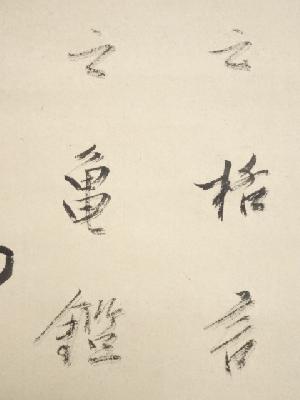 之格言
之亀鑑